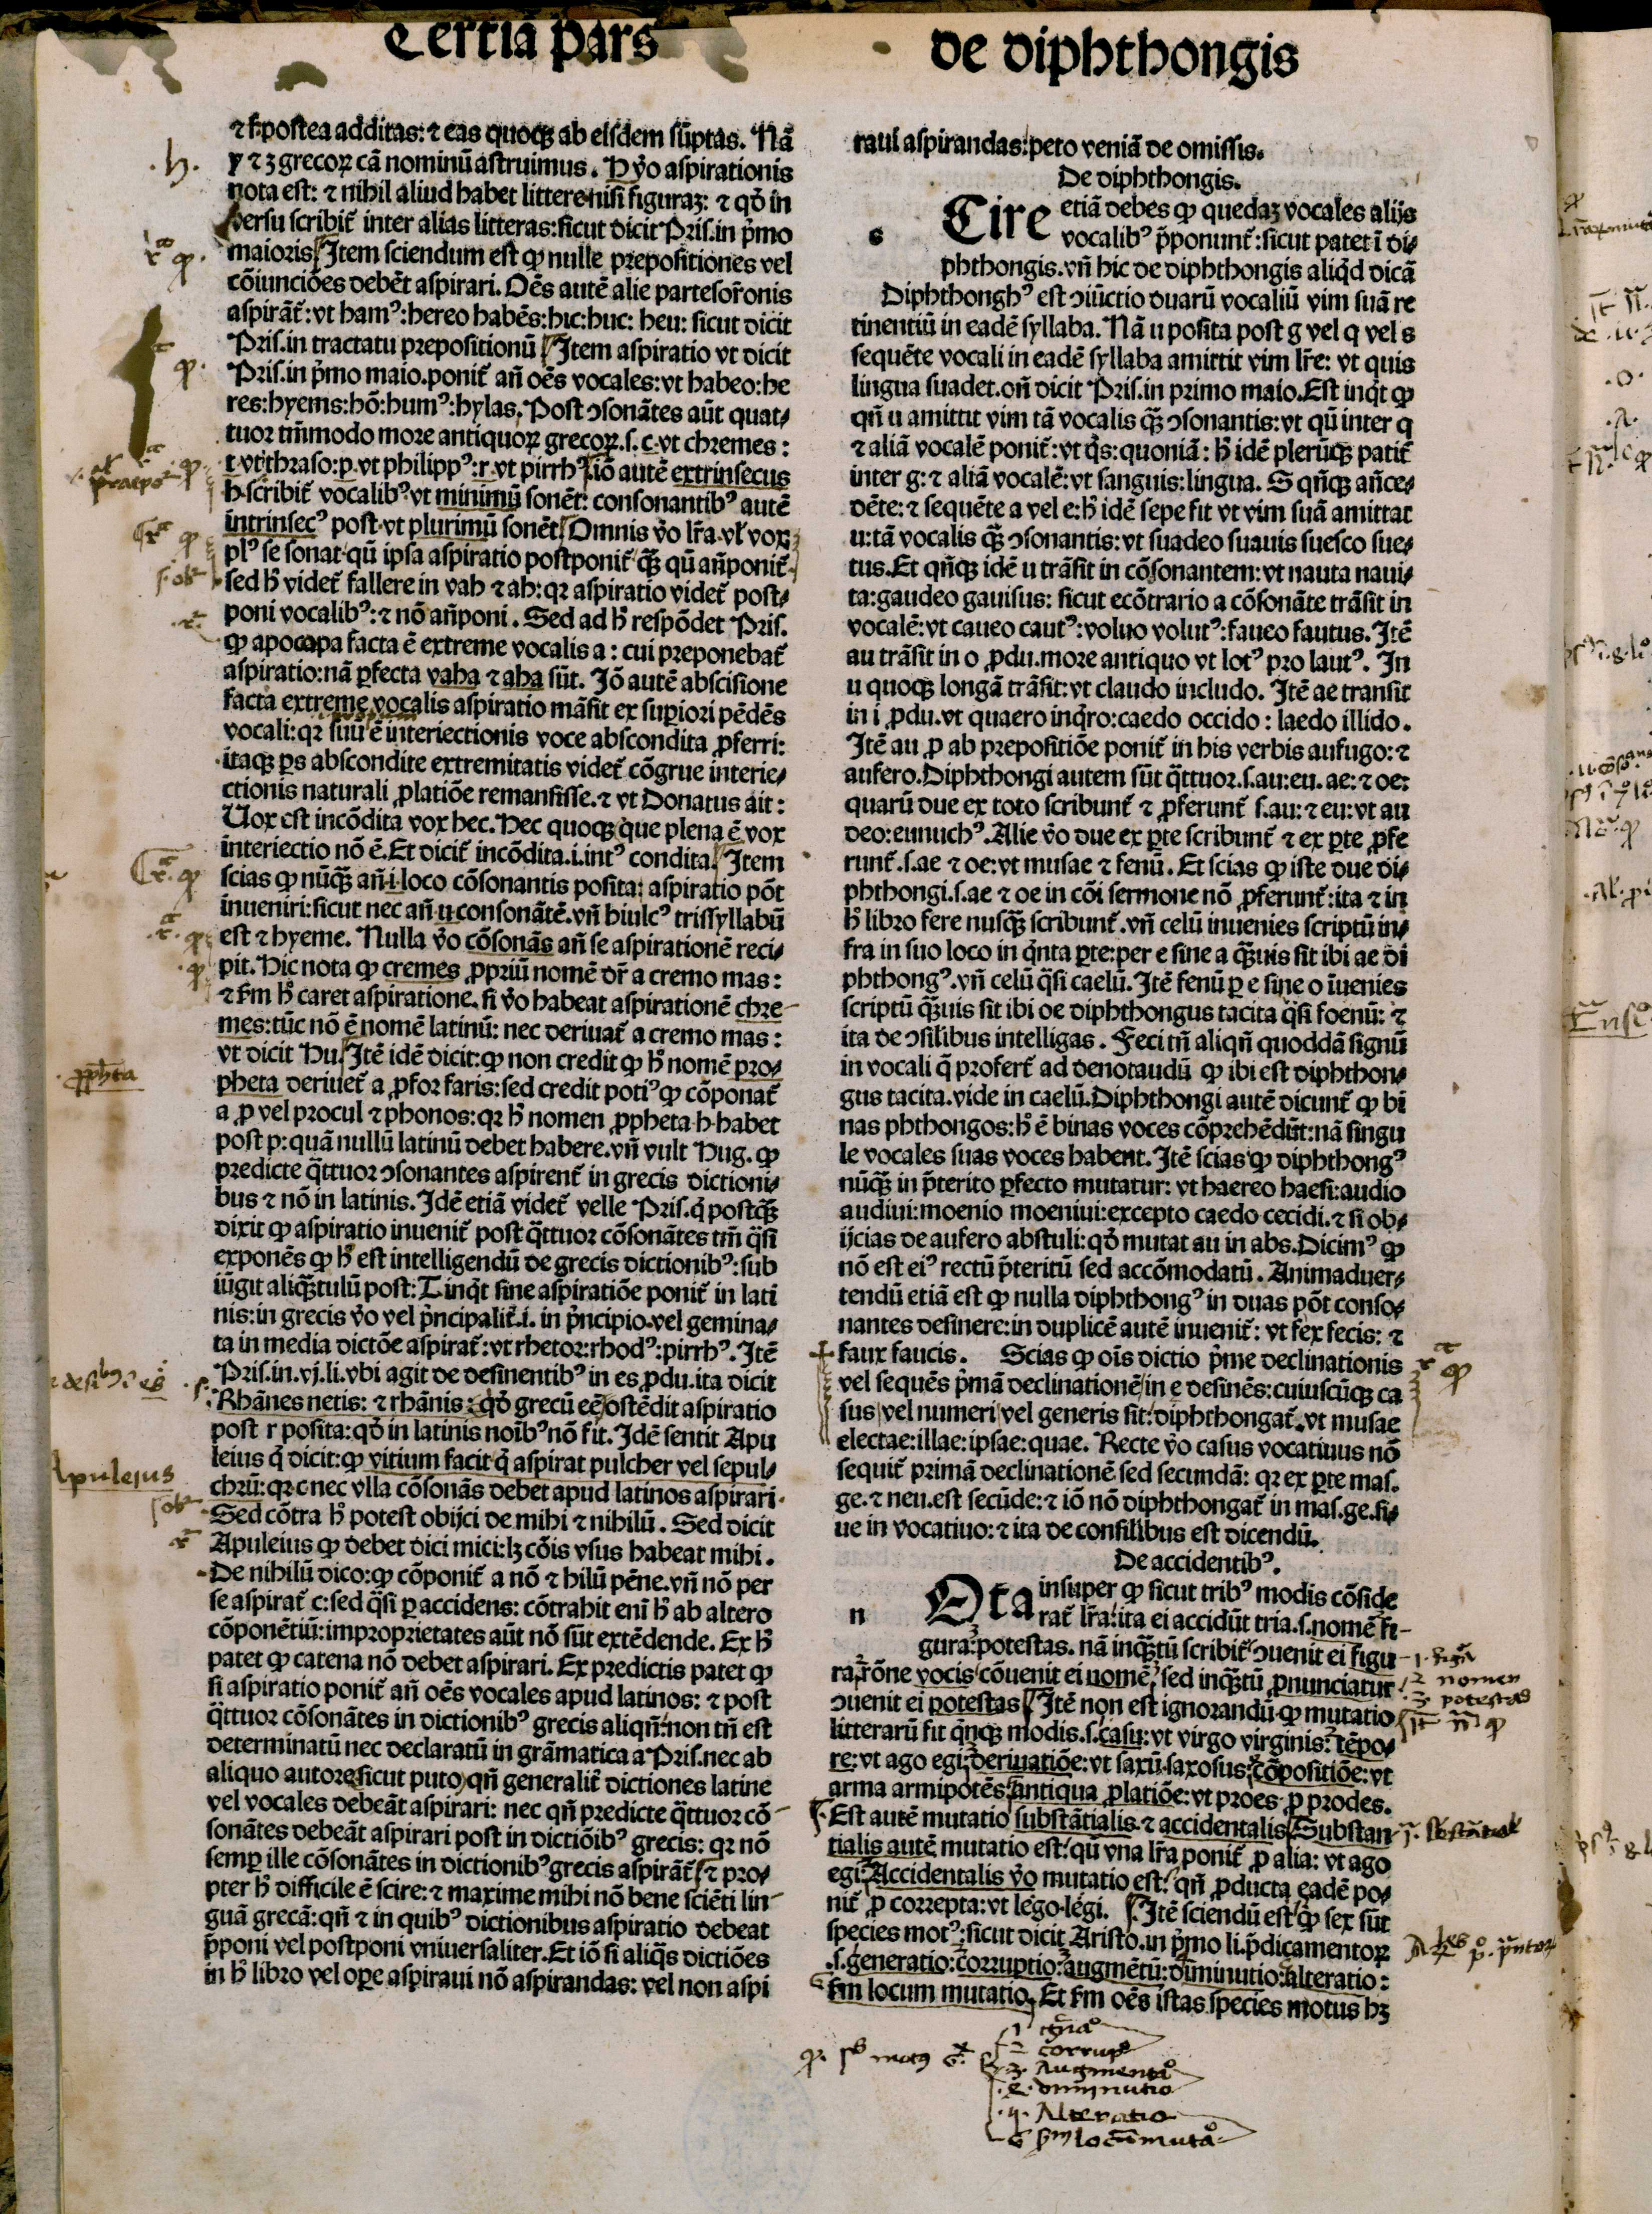 Tertia pars
de diphthongis
⁊ k̄ postea additas: ⁊ eas quoqꝫ ab eisdem sūptas. Nā
y ⁊ z grecoꝝ cā nominū astruimus. H v̉o aspirationis
nota est: ⁊ nihil aliud habet littere nisi figuraꝫ: ⁊ qð in
versu scribit̃ inter alias litteras: sicut dicit Pris. in p̉mo
maioris Item sciendum est ꝙ nulle prepositiones vel
cōiunciōes debēt aspirari. Oēs autē alie partes or̄onis
aspirāt̃: vt hamꝰ: hereo habēs: hic: huc: heu: sicut dicit
Pris. in tractatu prepositionū Item aspiratio vt dicit
Pris. in p̉mo maio. ponit̃ an̄ oēs vocales: vt habeo: he
res: hyems: hō: humꝰ: hylas. Post ↄsonātes aūt quat-
tuor tm̄modo more antiquoꝝ grecoꝝ. s. c. vt chremes:
t. vt thraso: p. vt philippꝰ: r. vt pirrhꝰ iō autē extrinsecus
h. scribit̃ vocalibꝰ. vt minimū sonēt: consonantibꝰ autē
intrinsecꝰ post. vt plurimū sonēt Omnis v̉o lr̄a. vl̄ vox
plꝰ se sonat. qū ipsa aspiratio postponit̃ qꝫ̄ qū an̄ponit̃.
sed h̉ videt̃ fallere in vah ⁊ ah: qꝛ aspiratio videt̃ post-
poni vocalibꝰ: ⁊ nō an̄poni. Sed ad h̉ respōdet Pris.
ꝙ apocapa facta ē extreme vocalis a: cui preponebat̃
aspiratio: nā ꝑfecta vaha ⁊ aha sūt. Iō autē abscisione
facta extreme vocalis aspiratio māsit ex suꝑiori pēdēs
vocali: qꝛ suū ē interiectionis voce abscondita ꝓferri:
itaqꝫ ꝑs abscondite extremitatis videt̃ cōgrue interie-
ctionis naturali ꝓlatiōe remansisse. ⁊ vt Donatus ait:
Vox est incōdita vox hec. Hec quoqꝫ que plena ē vox
interiectio nō ē. Et dicit̃ incōdita. i. intꝰ condita. Item
scias ꝙ nūqꝫ̄ an̄ .i. loco cōsonantis posita: aspiratio pōt
inueniri: sicut nec an̄ u consonātē. vn̄ hiulcꝰ trissyllabū
est ⁊ hyeme. Nulla v̉o cōsonās an̄ se aspirationē reci-
pit. Hic nota ꝙ cremes ꝓpriū nomē dr̄ a cremo mas:
⁊ km̄ h̉ caret aspiratione. si v̉o habeat aspirationē chre-
mes: tūc nō ē nomē latinū: nec deriuat̃ a cremo mas:
vt dicit Hu. Itē idē dicit: ꝙ non credit ꝙ h̉ nomē pro-
pheta deriuet̃ a ꝓfor faris: sed credit potiꝰ ꝙ cōponat̃
a ꝓ vel procul ⁊ phonos: qꝛ h̉ nomen ꝓpheta h habet
post p: quā nullū latinū debet habere. vn̄ vult Hug. ꝙ
predicte q̄ttuor ↄsonantes aspirent̃ in grecis dictioni-
bus ⁊ nō in latinis. Idē etiā videt̃ velle Pris. q̉ postqꝫ̄
dixit ꝙ aspiratio inuenit̃ post q̄ttuor cōsonātes tm̄ q̄si
exponēs ꝙ h̉ est intelligendū de grecis dictionibꝰ: sub
iūgit aliqꝫ̄tulū post: T inq̉t sine aspiratiōe ponit̃ in lati
nis: in grecis v̉o vel p̉ncipalit̃. i. in p̉ncipio. vel gemina-
ta in media dictōe aspirat̃: vt rhetor: rhodꝰ: pirrhꝰ. Itē
Pris. in. vj. li. vbi agit de desinentibꝰ in es ꝓdu. ita dicit
Rhānes netis: ⁊ rhānis: qð grecū eē ostēdit aspiratio
post r posita: qð in latinis noībꝰ nō fit. Idē sentit Apu
leius q̉ dicit: ꝙ vitium facit q̉ aspirat pulcher vel sepul-
chrū: qꝛ c nec vlla cōsonās debet apud latinos aspirari.
Sed cōtra h̉ potest obijci de mihi ⁊ nihilū. Sed dicit
Apuleius ꝙ debet dici mici: lꝫ cōis vsus habeat mihi.
De nihilū dico: ꝙ cōponit̃ a nō ⁊ hilū pēne. vn̄ nō per
se aspirat̃ c: sed q̄si ꝑ accidens: cōtrahit enī h̉ ab altero
cōponētiū: improprietates aūt nō sūt extēdende. Ex h̉
patet ꝙ catena nō debet aspirari. Ex predictis patet ꝙ
si aspiratio ponit̃ an̄ oēs vocales apud latinos: ⁊ post
q̄ttuor cōsonātes in dictionibꝰ grecis aliqn̄: non tn̄ est
determinatū nec declaratū in grāmatica a Pris. nec ab
aliquo autore sicut puto qn̄ generalit̃ dictiones latine
vel vocales debeāt aspirari: nec qn̄ predicte q̄ttuor cō-
sonātes debeāt aspirari post in dictiōibꝰ grecis: qꝛ nō
semꝑ ille cōsonātes in dictionibꝰ grecis aspirāt̃ ⁊ pro-
pter h̉ difficile ē scire: ⁊ maxime mihi nō bene sciēti lin-
guā grecā: qn̄ ⁊ in quibꝰ dictionibus aspiratio debeat
p̄poni vel postponi vniuersaliter. Et iō si aliq̉s dictiōes
in h̉ libro vel oꝑe aspiraui nō aspirandas: vel non aspi
raui aspirandas: peto veniā de omissis.
De diphthongis.
s Cire etiā debes ꝙ quedaꝫ vocales alijs
vocalibꝰ p̄ponunt̃: sicut patet ī di-
phthongis. vn̄ hic de diphthongis aliq̉d dicā
Diphthonghꝰ est ↄiūctio duarū vocaliū vim suā re
tinentiū in eadē syllaba. Nā u posita post g vel q vel s
sequēte vocali in eadē syllaba amittit vim lr̄e: vt quis
lingua suadet. on̄ dicit Pris. in primo maio. Est inq̉t ꝙ
qn̄ u amittit vim tā vocalis qꝫ̄ ↄsonantis: vt qū inter q
⁊ aliā vocalē ponit̃: vt q̉s: quoniā: h̉ idē plerūqꝫ patit̃
inter g: ⁊ aliā vocalē: vt sanguis: lingua. S qn̄qꝫ an̄ce-
dēte: ⁊ sequēte a vel e: h̉ idē sepe fit vt vim suā amittat
u: tā vocalis qꝫ̄ ↄsonantis: vt suadeo suauis suesco sue-
tus. Et qn̄qꝫ idē u trāsit in cōsonantem: vt nauta naui-
ta: gaudeo gauisus: sicut ecōtrario a cōsonāte trāsit in
vocalē: vt caueo cautꝰ: voluo volutꝰ: faueo fautus. Itē
au trāsit in o ꝓdu. more antiquo vt lotꝰ pro lautꝰ. In
u quoqꝫ longā trāsit: vt claudo includo. Itē ae transit
in i ꝓdu. vt quaero inq̉ro: caedo occido: laedo illido.
Itē au ꝓ ab prepositiōe ponit̃ in his verbis aufugo: ⁊
aufero. Diphthongi autem sūt q̄ttuor. s. au: eu. ae: ⁊ oe:
quarū due ex toto scribunt̃ ⁊ ꝓferunt̃ s. au: ⁊ eu: vt au
deo: eunuchꝰ. Alie v̉o due ex ꝑte scribunt̃ ⁊ ex ꝑte ꝓfe
runt̃. s. ae ⁊ oe: vt musae ⁊ fenū. Et scias ꝙ iste due di-
phthongi. s. ae ⁊ oe in cōi sermone nō ꝓferunt̃: ita ⁊ in
h̉ libro fere nusqꝫ̄ scribunt̃. vn̄ celū inuenies scriptū in-
fra in suo loco in q̉nta ꝑte: per e sine a qꝫ̄uis sit ibi ae di
phthongꝰ. vn̄ celū q̄si caelū. Itē fenū ꝑ e sine o īuenies
scriptū qꝫ̄uis sit ibi oe diphthongus tacita q̄si foenū: ⁊
ita de ↄsilibus intelligas. Feci tn̄ aliqn̄ quoddā signū
in vocali q̄ profert̃ ad denotaudū ꝙ ibi est diphthon-
gus tacita. vide in caelū. Diphthongi autē dicunt̃ ꝙ bi
nas phthongos: h̉ ē binas voces cōprehēdūt: nā singu
le vocales suas voces habent. Itē scias ꝙ diphthongꝰ
nūqꝫ̄ in p̄terito ꝑfecto mutatur: vt haereo haesi: audio
audiui: moenio moeniui: excepto caedo cecidi. ⁊ si ob-
ijcias de aufero abstuli: qð mutat au in abs. Dicimꝰ ꝙ
nō est eiꝰ rectū p̄teritū sed accōmodatū. Animaduer-
tendū etiā est ꝙ nulla diphthongꝰ in duas pōt conso-
nantes desinere: in duplicē autē inuenit̃: vt fex fecis: ⁊
faux faucis. Scias ꝙ oīs dictio p̉me declinationis
vel sequēs p̉mā declinationē in e desinēs: cuiuscūqꝫ ca
sus vel numeri vel generis sit: diphthongat̃. vt musae
electae: illae: ipsae: quae. Recte v̉o casus vocatiuus nō
sequit̃ primā declinationē sed secundā: qꝛ ex ꝑte mas.
ge. ⁊ neu. est secūde: ⁊ iō nō diphthongat̃ in mas. ge. si-
ue in vocatiuo: ⁊ ita de consilibus est dicendū.
De accidentibꝰ.
n Ota insuper ꝙ sicut tribꝰ modis cōside
rat̃ lr̄a: ita ei accidūt tria. s. nomē fi-
gura: potestas. nā inqꝫ̄tū scribit̃ ↄuenit ei figu-
ra rōne vocis cōuenit ei nomē, sed inqꝫ̄tū ꝓnunciatur
ↄuenit ei potestas Itē non est ignorandū ꝙ mutatio
litterarū fit q̉nqꝫ modis. s. casu: vt virgo virginis: tēpo-
re: vt ago egi: deriuatiōe: vt saxū saxosus: cōpositiōe: vt
arma armipotēs antiqua ꝓlatiōe: vt proes ꝓ prodes.
Est autē mutatio substātialis ⁊ accidentalis Substan-
tialis autē mutatio est: qū vna lr̄a ponit̃ ꝓ alia: vt ago
egi. Accidentalis v̉o mutatio est: qn̄ ꝓducta eadē po-
nit̃ ꝓ correpta: vt lego legi. Itē sciendū est ꝙ sex sūt
species motꝰ: sicut dicit Aristo. in p̉mo li. p̄dicamentoꝝ
.s. generatio: corruptio: augmētū: diminutio: alteratio:
km̄ locum mutatio. Et km̄ oēs istas species motus hꝫ
.h.
Apulejus
1. figā
2 nomen
3 potestas
corrup
3. Augmentā
diminutio
Alteratio
6 locū mutā